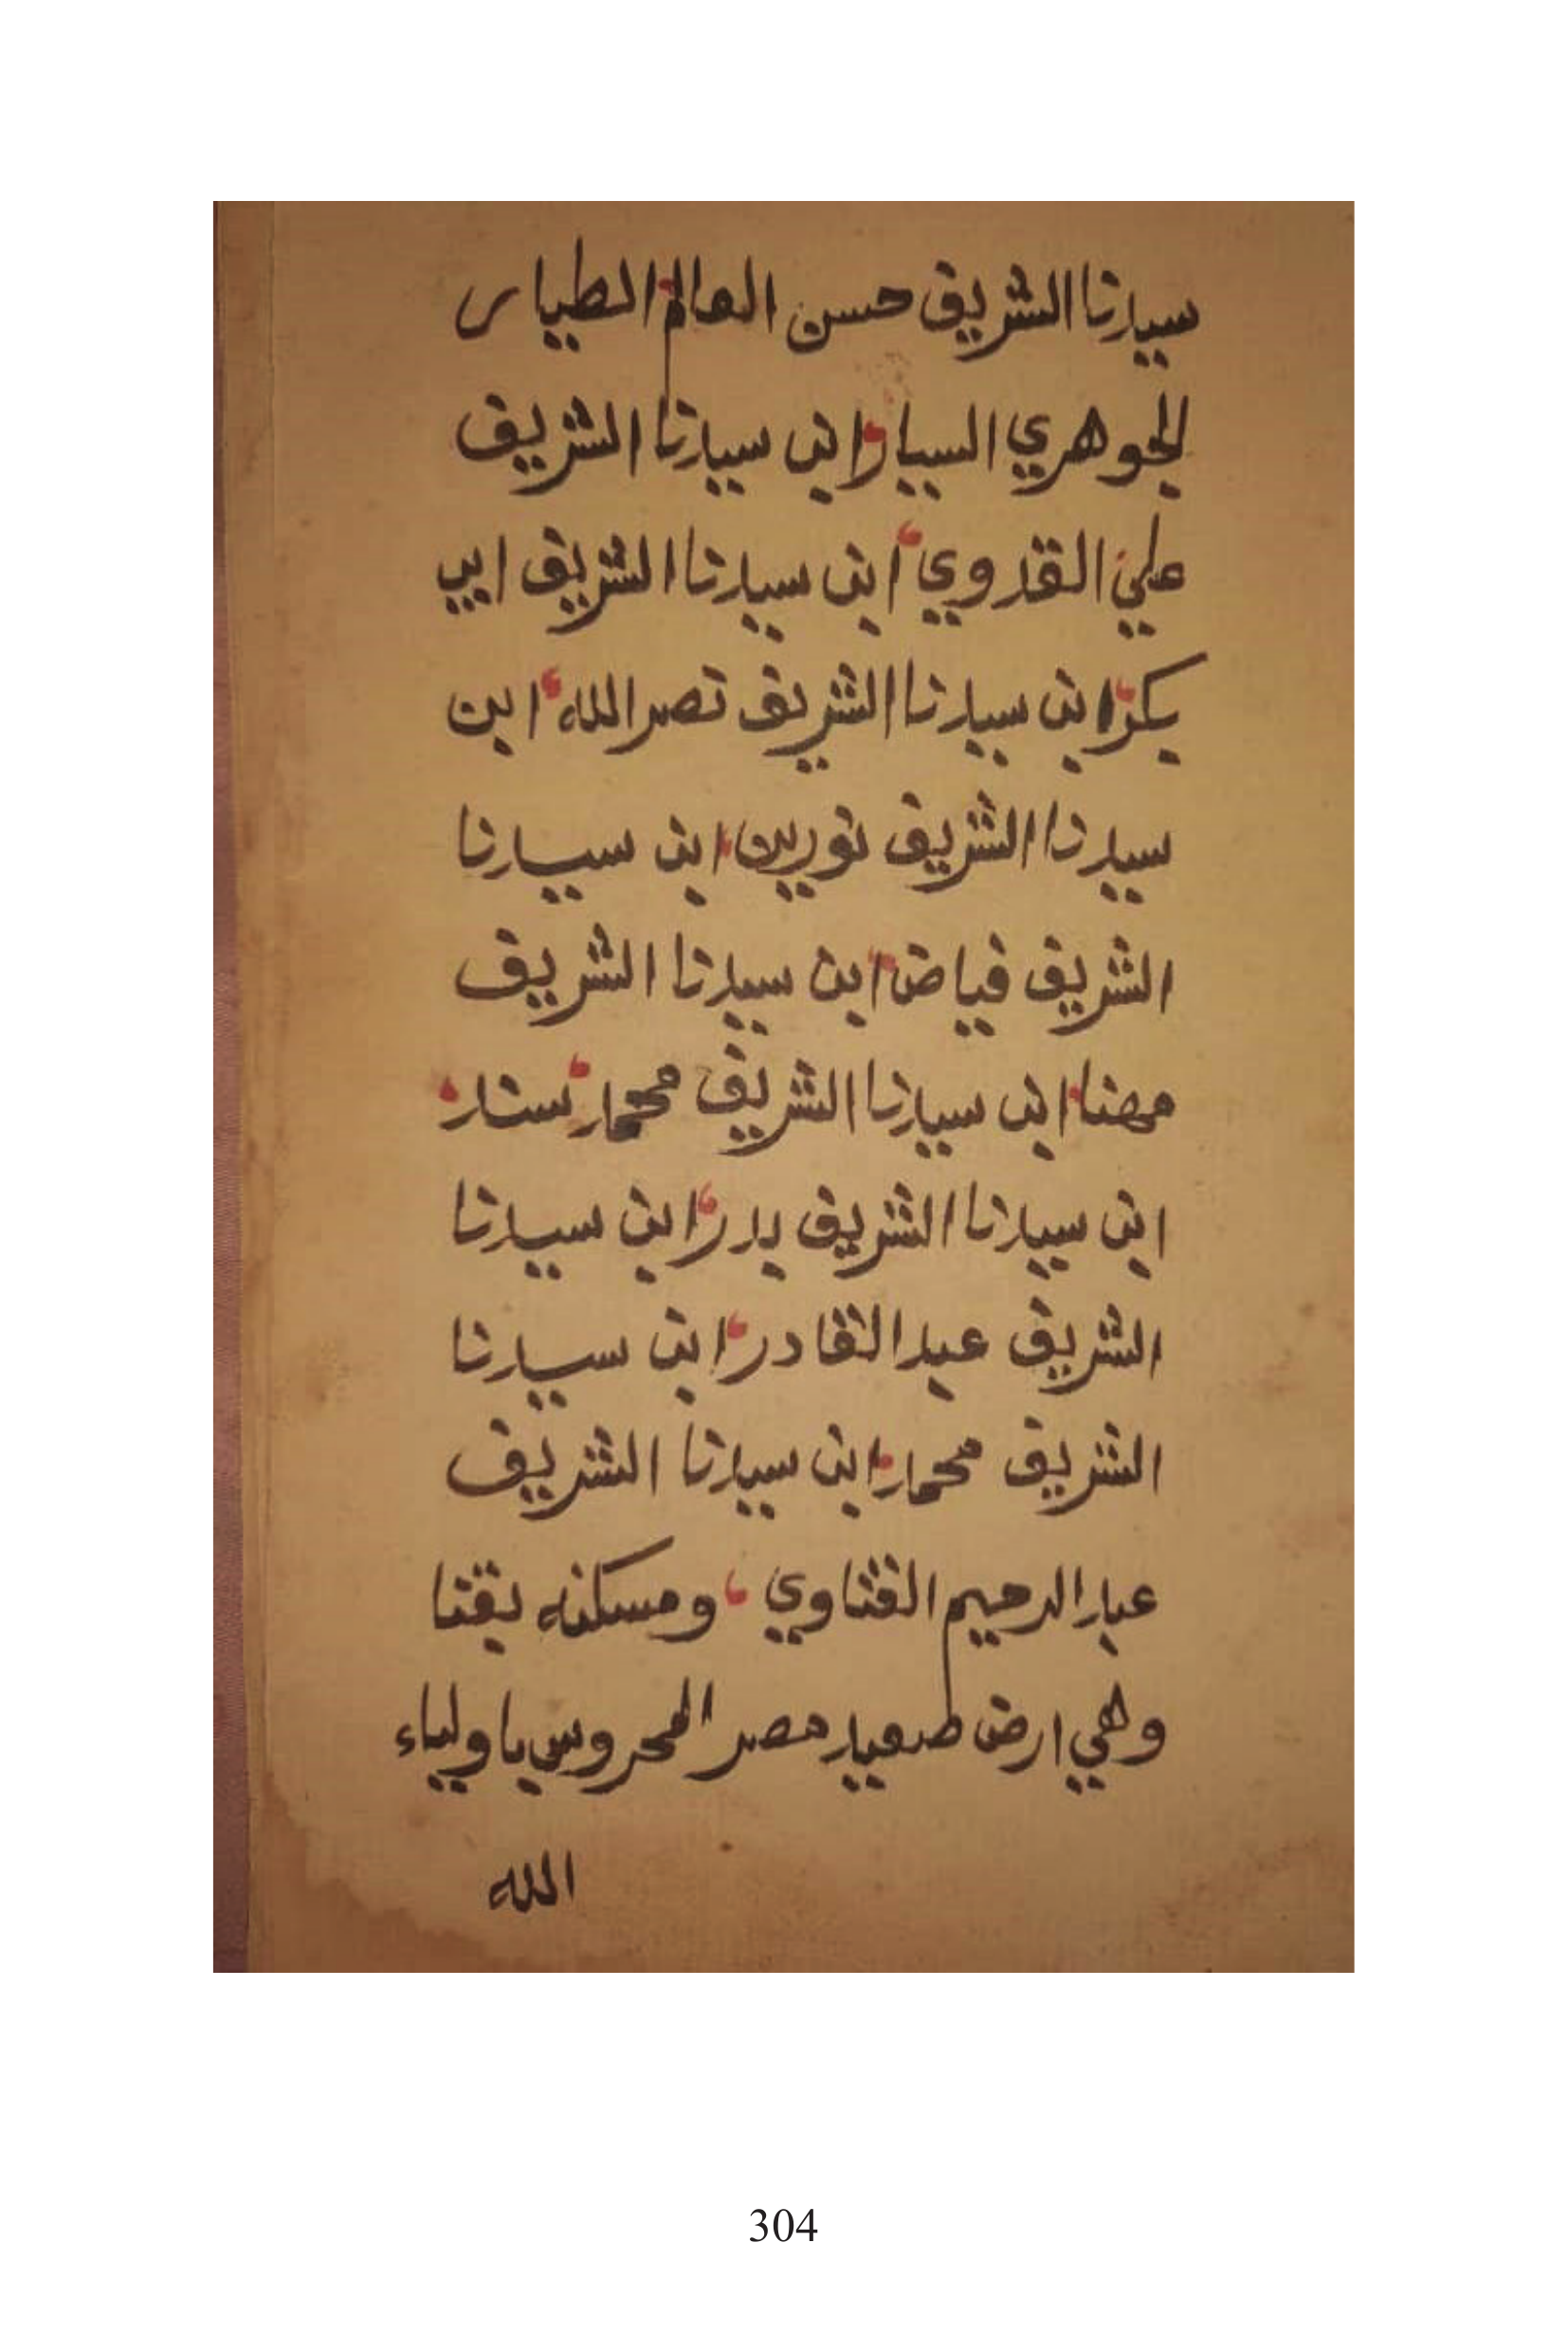 سيدنا الشريف حسن العالم الطيار
الجوهري السيار ابن سيدنا الشريف
علي القدوي ابن سيدنا الشريف ابي
بكر ابن سيدنا الشريف نصر الله ابن
سيدنا الشريف نورين ابن سيدنا
الشريف فياض ابن سيدنا الشريف
مهنا ابن سيدنا الشريف محمد ستار
ابن سيدنا الشريف بدر ابن سيدنا
الشريف عبد القادر ابن سيدنا
الشريف محمد ابن سيدنا الشريف
عبد الرحيم القناوي ومسكنه بقنا
وهي ارض صعيد مصر المحروس باولياء
الله
304